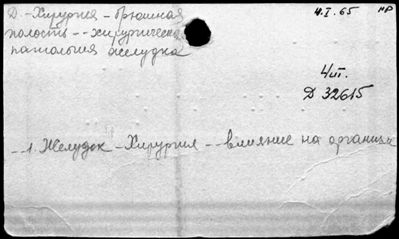 Д.-Хирургия - брюшная
полость - - хирургическая
патология желудка
4.I.65
НР
4 III.
Д 32615
-- 1. Желудок - Хирургия -- влияние на организм